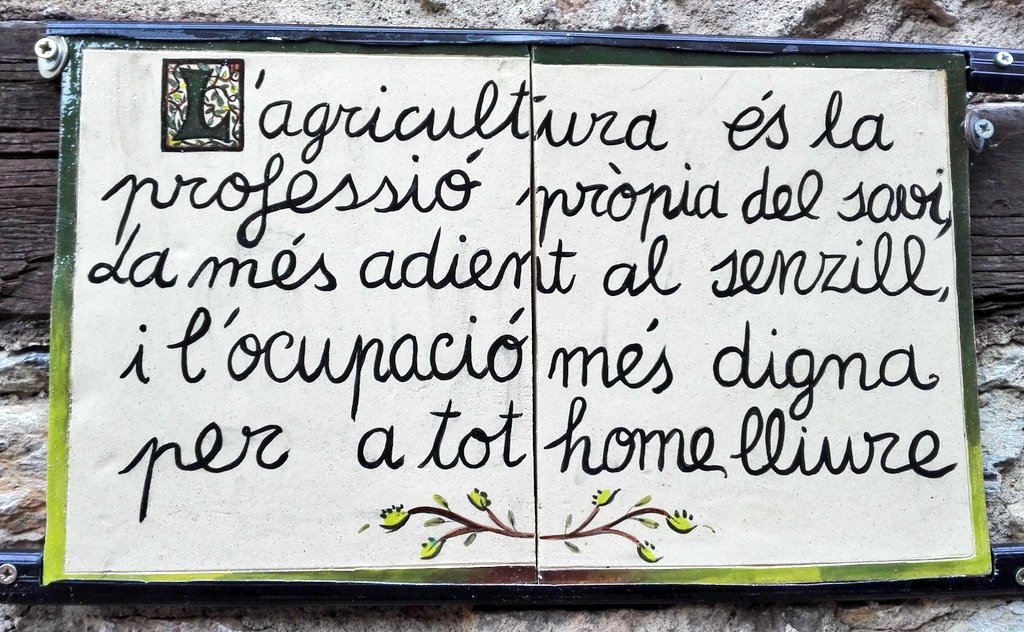 L'agricultura és la
professió pròpia del savi,
La més adient al senzill,
i l'ocupació més digna
per a tot home lliure